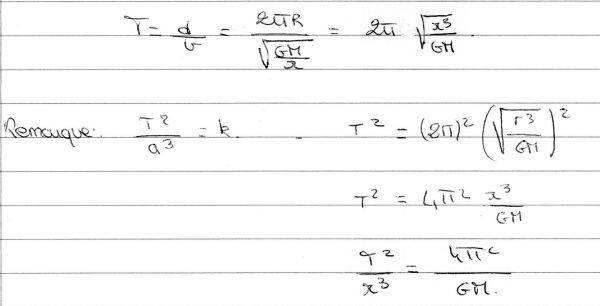 T = d/v = 2πR/√(GM/r) = 2π √(r³/GM).
Remarque: T²/a³ = k. - T² = (2π)² (√(r³/GM))²
T² = 4π² r³/GM
T²/r³ = 4π²/GM.